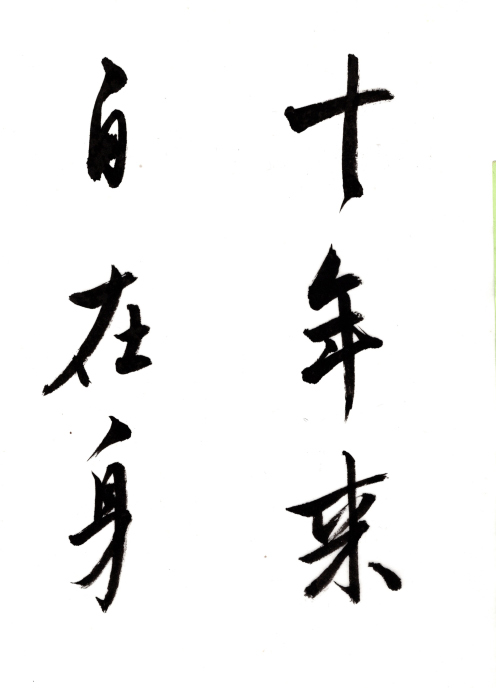 十年来
自在身